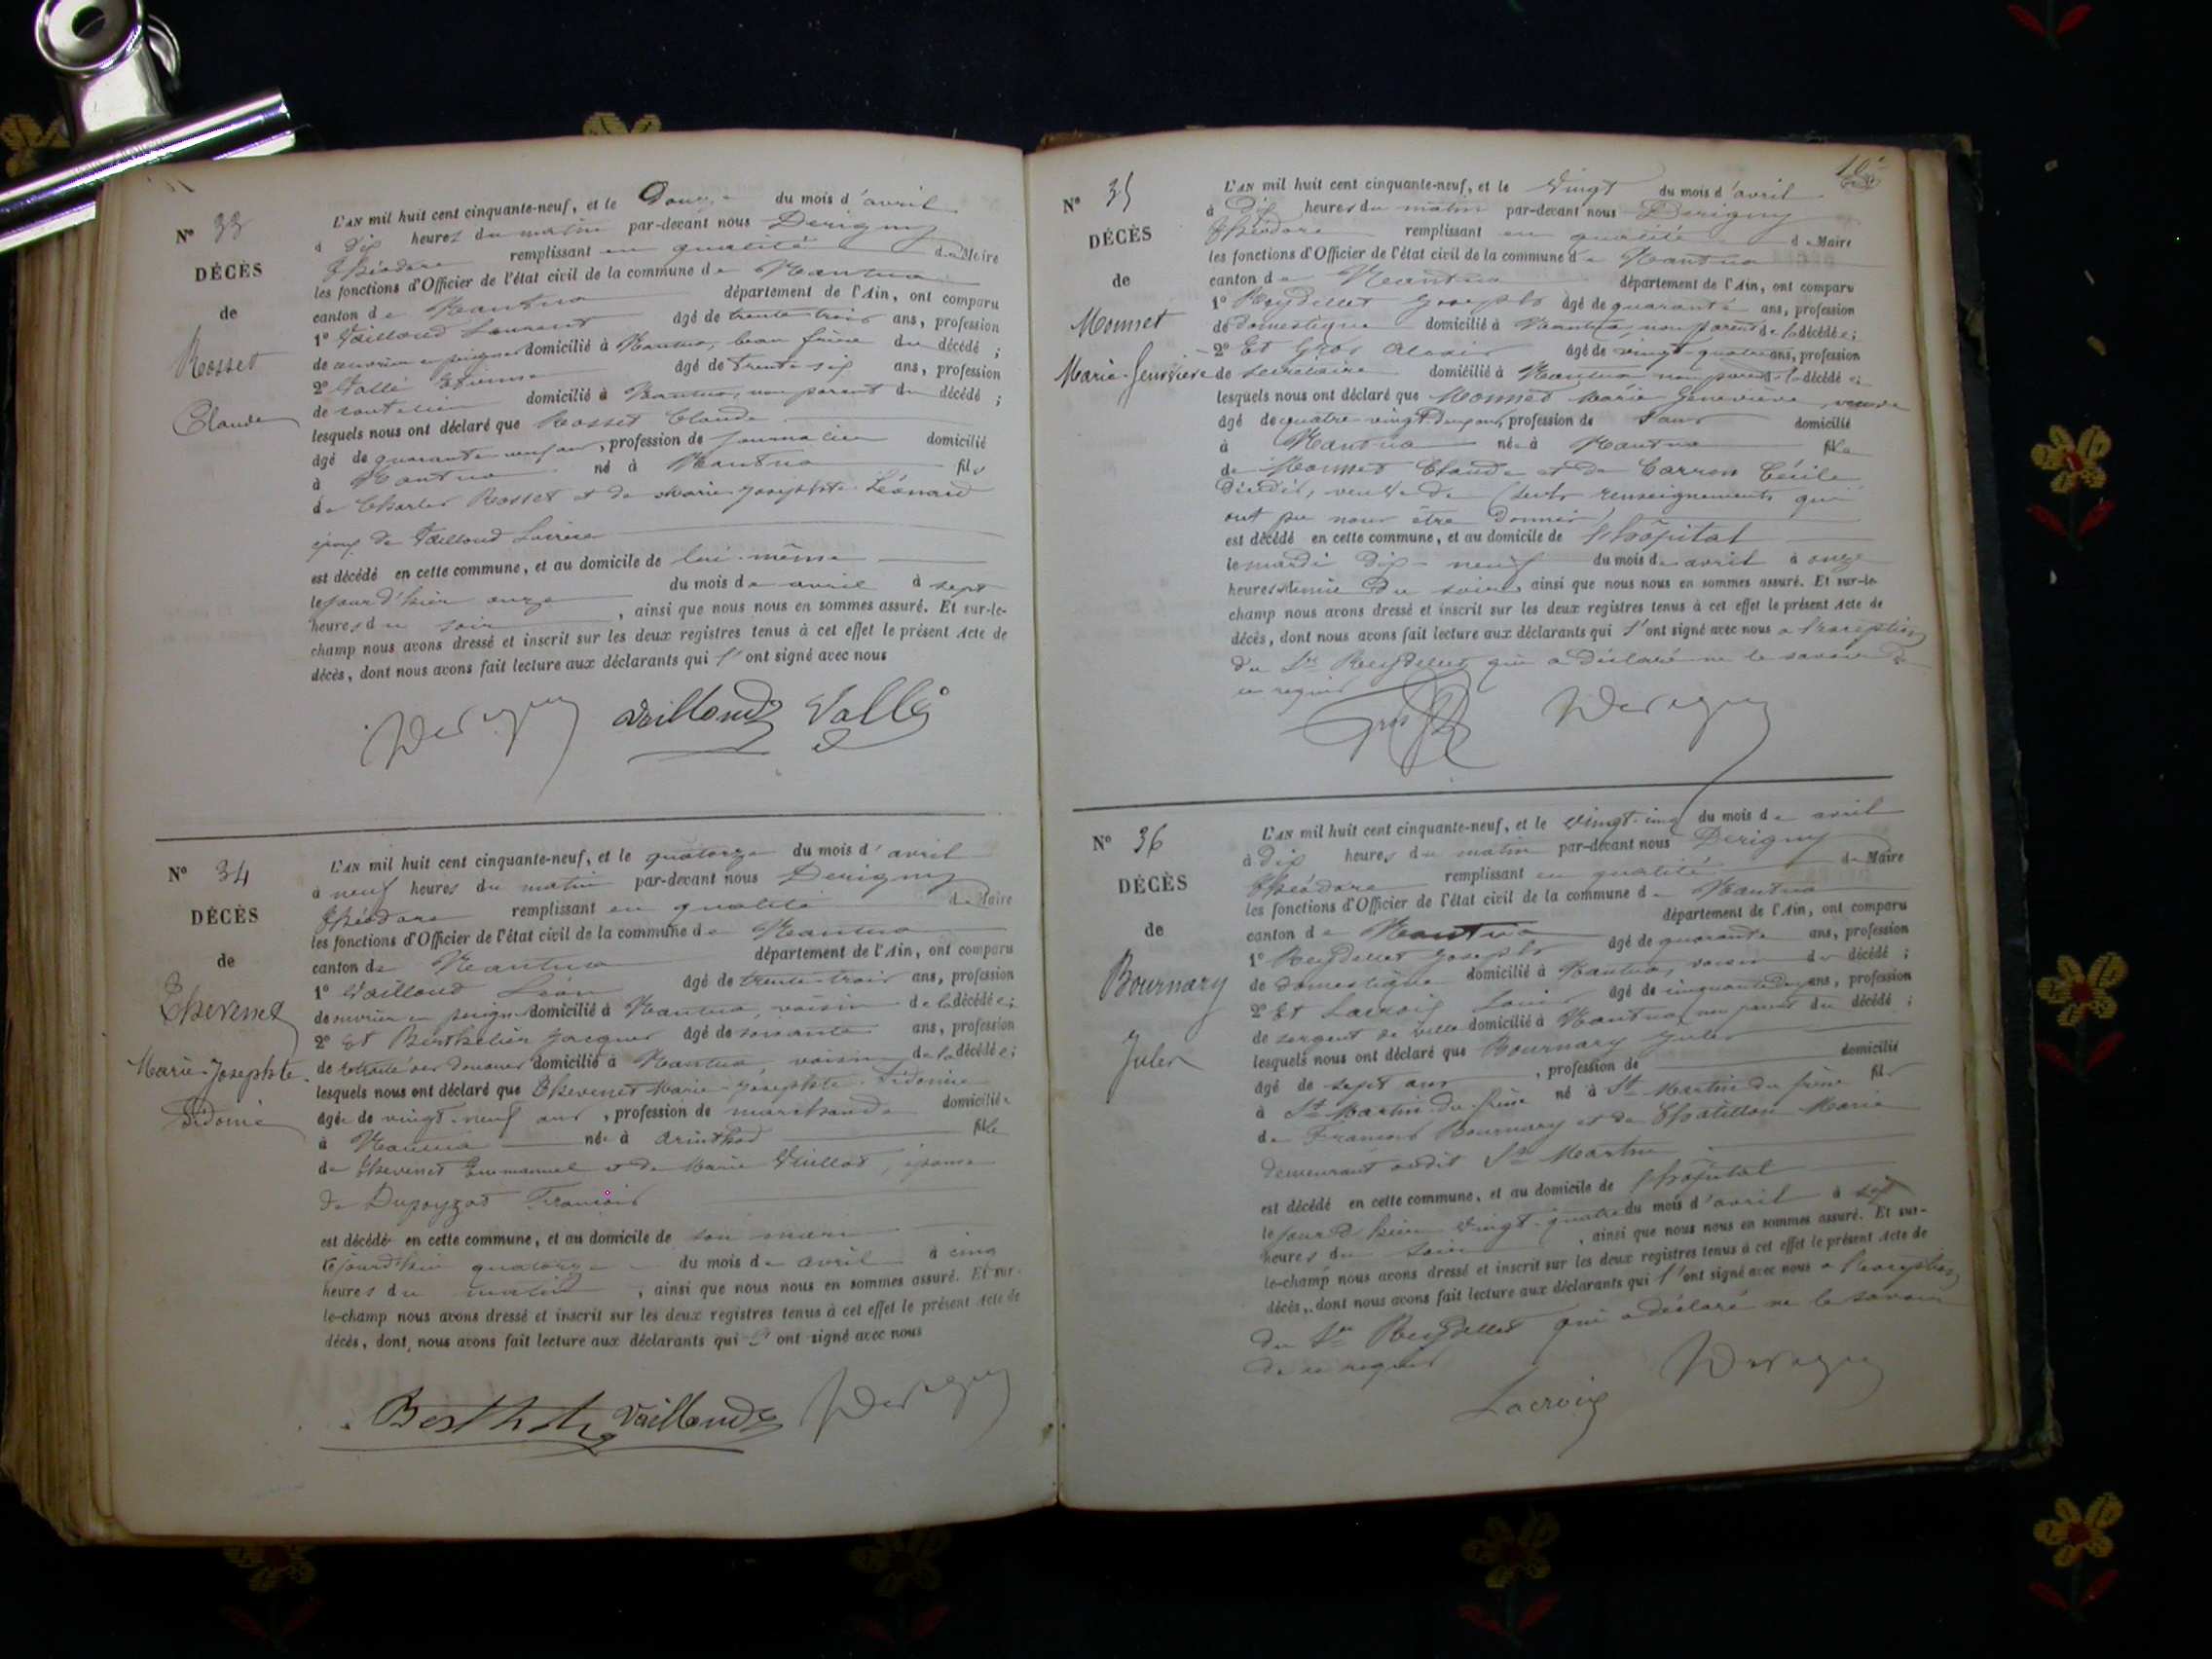 N° 33
DÉCÈS
de
Rosset
Claude
L'AN mil huit cent cinquante-neuf, et le Douze du mois d'avril
à dix heures du matin par-devant nous Derigny
Théodore remplissant en qualité de Maire
les fonctions d'Officier de l'état civil de la commune de Nantua
canton de Nantua département de l'Ain, ont comparu
1° Vailloud Laurent âgé de trente trois ans, profession
de ouvrier en peignes domicilié à Nantua, beau frère du décédé ;
2° Vallé Etienne âgé de trente six ans, profession
de domicilié à Nantua, non parent du décédé ;
lesquels nous ont déclaré que Rosset Claude
âgé de quarante neuf ans, profession de domicilié
à Nantua né à Nantua fils
de Charles Rosset et de Marie Josephte Léonard
époux de Vailloud
est décédé en cette commune, et au domicile de lui-même
le jour d'hier onze du mois de avril à sept
heures du soir, ainsi que nous nous en sommes assuré. Et sur-le-
champ nous avons dressé et inscrit sur les deux registres tenus à cet effet le présent Acte de
décès, dont nous avons fait lecture aux déclarants qui l'ont signé avec nous
Derigny Vailloud Vallé
N° 34
DÉCÈS
de
Thevenet
Marie-Josephte
Sidonie
L'AN mil huit cent cinquante-neuf, et le quatorze du mois d'avril
à neuf heures du matin par-devant nous Derigny
Théodore remplissant en qualité de Maire
les fonctions d'Officier de l'état civil de la commune de Nantua
canton de Nantua département de l'Ain, ont comparu
1° Vailloud Léon âgé de trente-trois ans, profession
de ouvrier en peignes domicilié à Nantua, voisin de la décédée ;
2° Et Berthelier Jacques âgé de soixante ans, profession
de retraité des douanes domicilié à Nantua, voisin de la décédée ;
lesquels nous ont déclaré que Thevenet Marie-Josephte Sidonie
âgée de vingt-neuf ans, profession de marchande domiciliée
à Nantua née à Arinthod fille
de Thevenet Emmanuel et de Marie épouse
de François
est décédée en cette commune, et au domicile de son mari
le jourd'hui quatorze du mois de avril à cinq
heures du matin, ainsi que nous nous en sommes assuré. Et sur-
le-champ nous avons dressé et inscrit sur les deux registres tenus à cet effet le présent Acte de
décès, dont nous avons fait lecture aux déclarants qui l'ont signé avec nous
Vailloud Derigny
N° 35
DÉCÈS
de
Monnet
Marie-Genevieve
L'AN mil huit cent cinquante-neuf, et le Vingt du mois d'avril
à Dix heures du matin par-devant nous Derigny
Théodore remplissant en qualité de Maire
les fonctions d'Officier de l'état civil de la commune de Nantua
canton de Nantua département de l'Ain, ont comparu
1° Reydellet Joseph âgé de quarante ans, profession
de domestique domicilié à Nantua, non parent de la décédée ;
2° Et Gros âgé de vingt-quatre ans, profession
de secrétaire domicilié à Nantua non parent de la décédée ;
lesquels nous ont déclaré que Monnet Marie Geneviève, veuve
âgé de quatre-vingt-deux ans, profession de sans domicilié
à Nantua née à Nantua fille
de Monnet Claude et de Carron Cécile
décédés, veuve de (seuls renseignements qui
ont pu nous être donnés)
est décédé en cette commune, et au domicile de l'hôpital
le mardi dix-neuf du mois de avril à onze
heures demie du soir ainsi que nous nous en sommes assuré. Et sur-le-
champ nous avons dressé et inscrit sur les deux registres tenus à cet effet le présent Acte de
décès, dont nous avons fait lecture aux déclarants qui l'ont signé avec nous à l'exception
du Sr Reydellet qui a déclaré ne le savoir de
ce requis
Gros Derigny
N° 36
DÉCÈS
de
Bournary
Jules
L'AN mil huit cent cinquante-neuf, et le vingt-cinq du mois de avril
à dix heures du matin par-devant nous Derigny
Théodore remplissant en qualité de Maire
les fonctions d'Officier de l'état civil de la commune de Nantua
canton de Nantua département de l'Ain, ont comparu
1° Reydellet Joseph âgé de quarante ans, profession
de domestique domicilié à Nantua, voisin du décédé ;
2° Et Lacroix Louis âgé de cinquante deux ans, profession
de sergent de ville domicilié à Nantua, non parent du décédé ;
lesquels nous ont déclaré que Bournary Jules
âgé de sept ans, profession de domicilié
à St Martin du frêne né à St Martin du frêne fils
de François Bournary et de Chatillon Marie
demeurant audit St Martin
est décédé en cette commune, et au domicile de l'hôpital
le jour d'hier vingt-quatre du mois d'avril à
heures du soir, ainsi que nous nous en sommes assuré. Et sur-
le-champ nous avons dressé et inscrit sur les deux registres tenus à cet effet le présent Acte de
décès, dont nous avons fait lecture aux déclarants qui l'ont signé avec nous à l'exception
du Sr Reydellet qui a déclaré ne le savoir
de ce requis
Lacroix Derigny